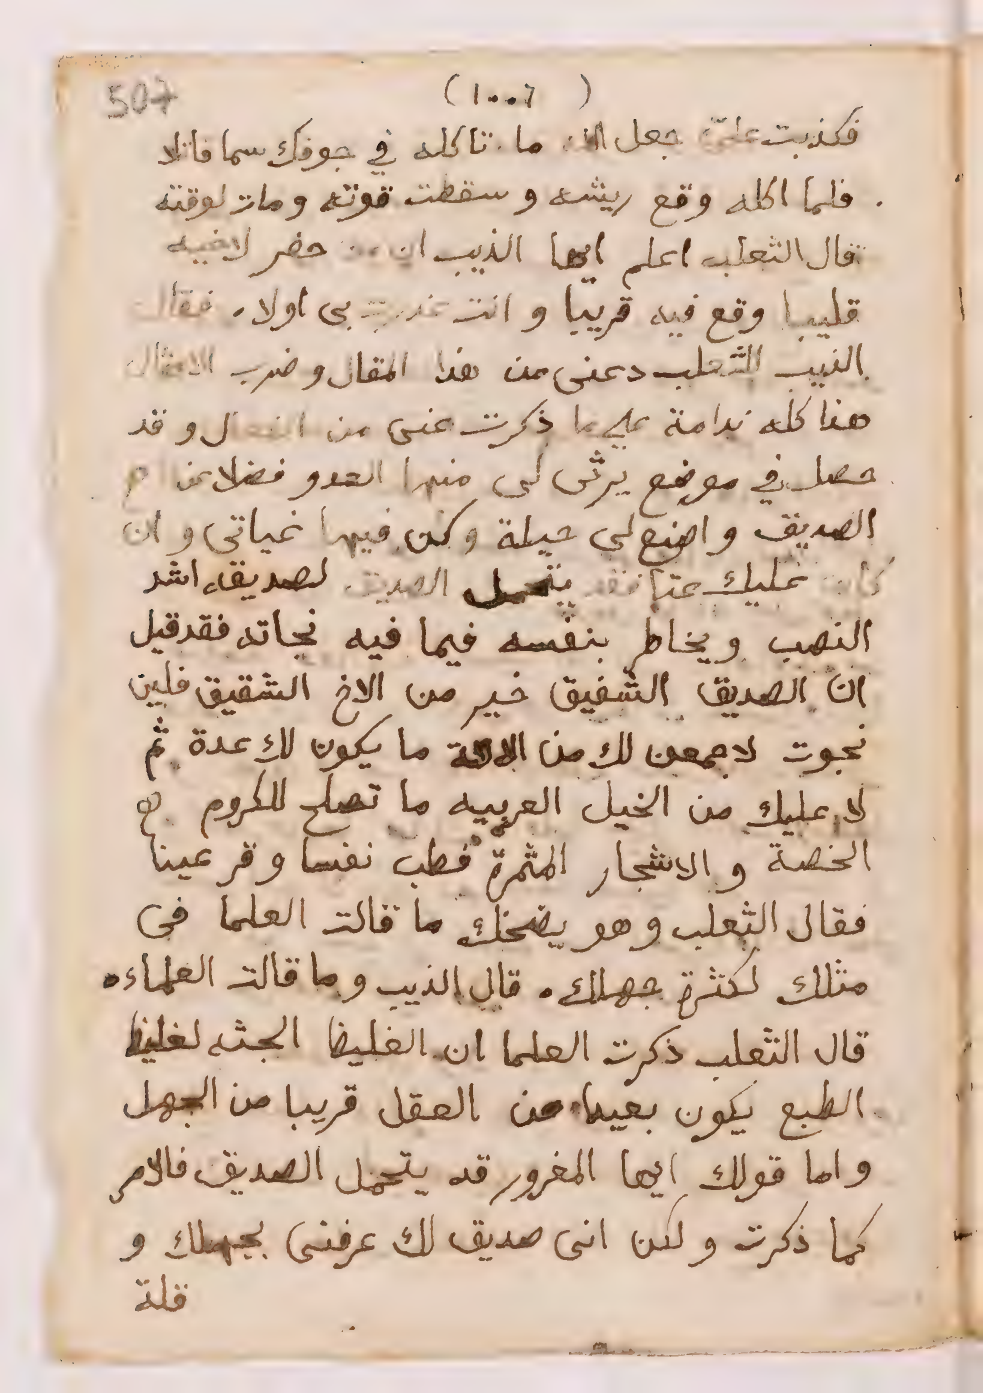 507
(١٠٠٦)
فكذبت على جعل الله ما تاكله في جوفك سما قاتلا
فلما اكله وقع ريشه و سقطت قوته ومات لوقته
قال الثعلب اعلم ايها الذيب ان من حفر لاخيه
قليبا وقع فيه قريبا و انت غدرت بى اولا. فقال
الذيب للثعلب دعنى من هذا المقال و ضرب الامثال
هذا كله ندامة على ما ذكرت عنى من الفعال و قد
حصل في موضع يرثى لى منها العدو فضلا عن
الصديق و اصنع لى حيلة وكن فيها غياثى و ان
كان عليك عنا فقد يتحمل الصديق لصديقه اشد
النصب ويخاطر بنفسه فيما فيه نجاته فقد قيل
ان الصديق الشفيق خير من الاخ الشقيق فلين
نجوت لاجمعن لك من الالة ما يكون لك عدة ثم
لا عليك من الخيل العربيه ما تصلح للكروم
الخصة و الاشجار المثمرة فطب نفسا و قر عينا
فقال الثعلب و هو يضحك ما قالت العلما فى
مثلك لكثرة جهلك. قال الذيب و ما قالت العلماء.
قال الثعلب ذكرت العلما ان الغليظ الجثه لغليظ
الطبع يكون بعيدا من العقل قريبا من الجهل
و اما قولك ايها المغرور قد يتحمل الصديق فالامر
كما ذكرت و لكن انى صديق لك عرفنى بجهلك و
قلة